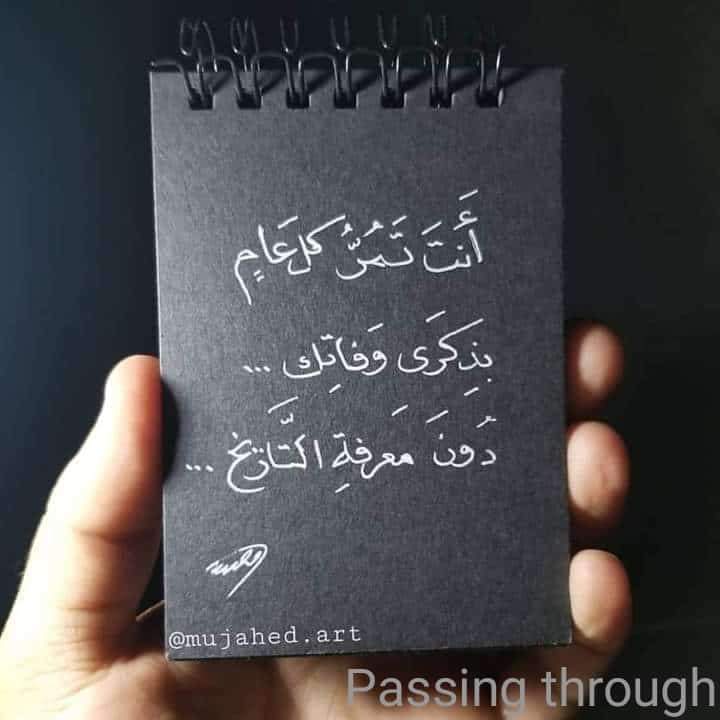 أَنتَ تَمُرُّ كل عَامٍ
بِذِكرَى وَفاتِك ...
دُونَ مَعرفةِ التَّاريخ ...
@mujahed.art
Passing through